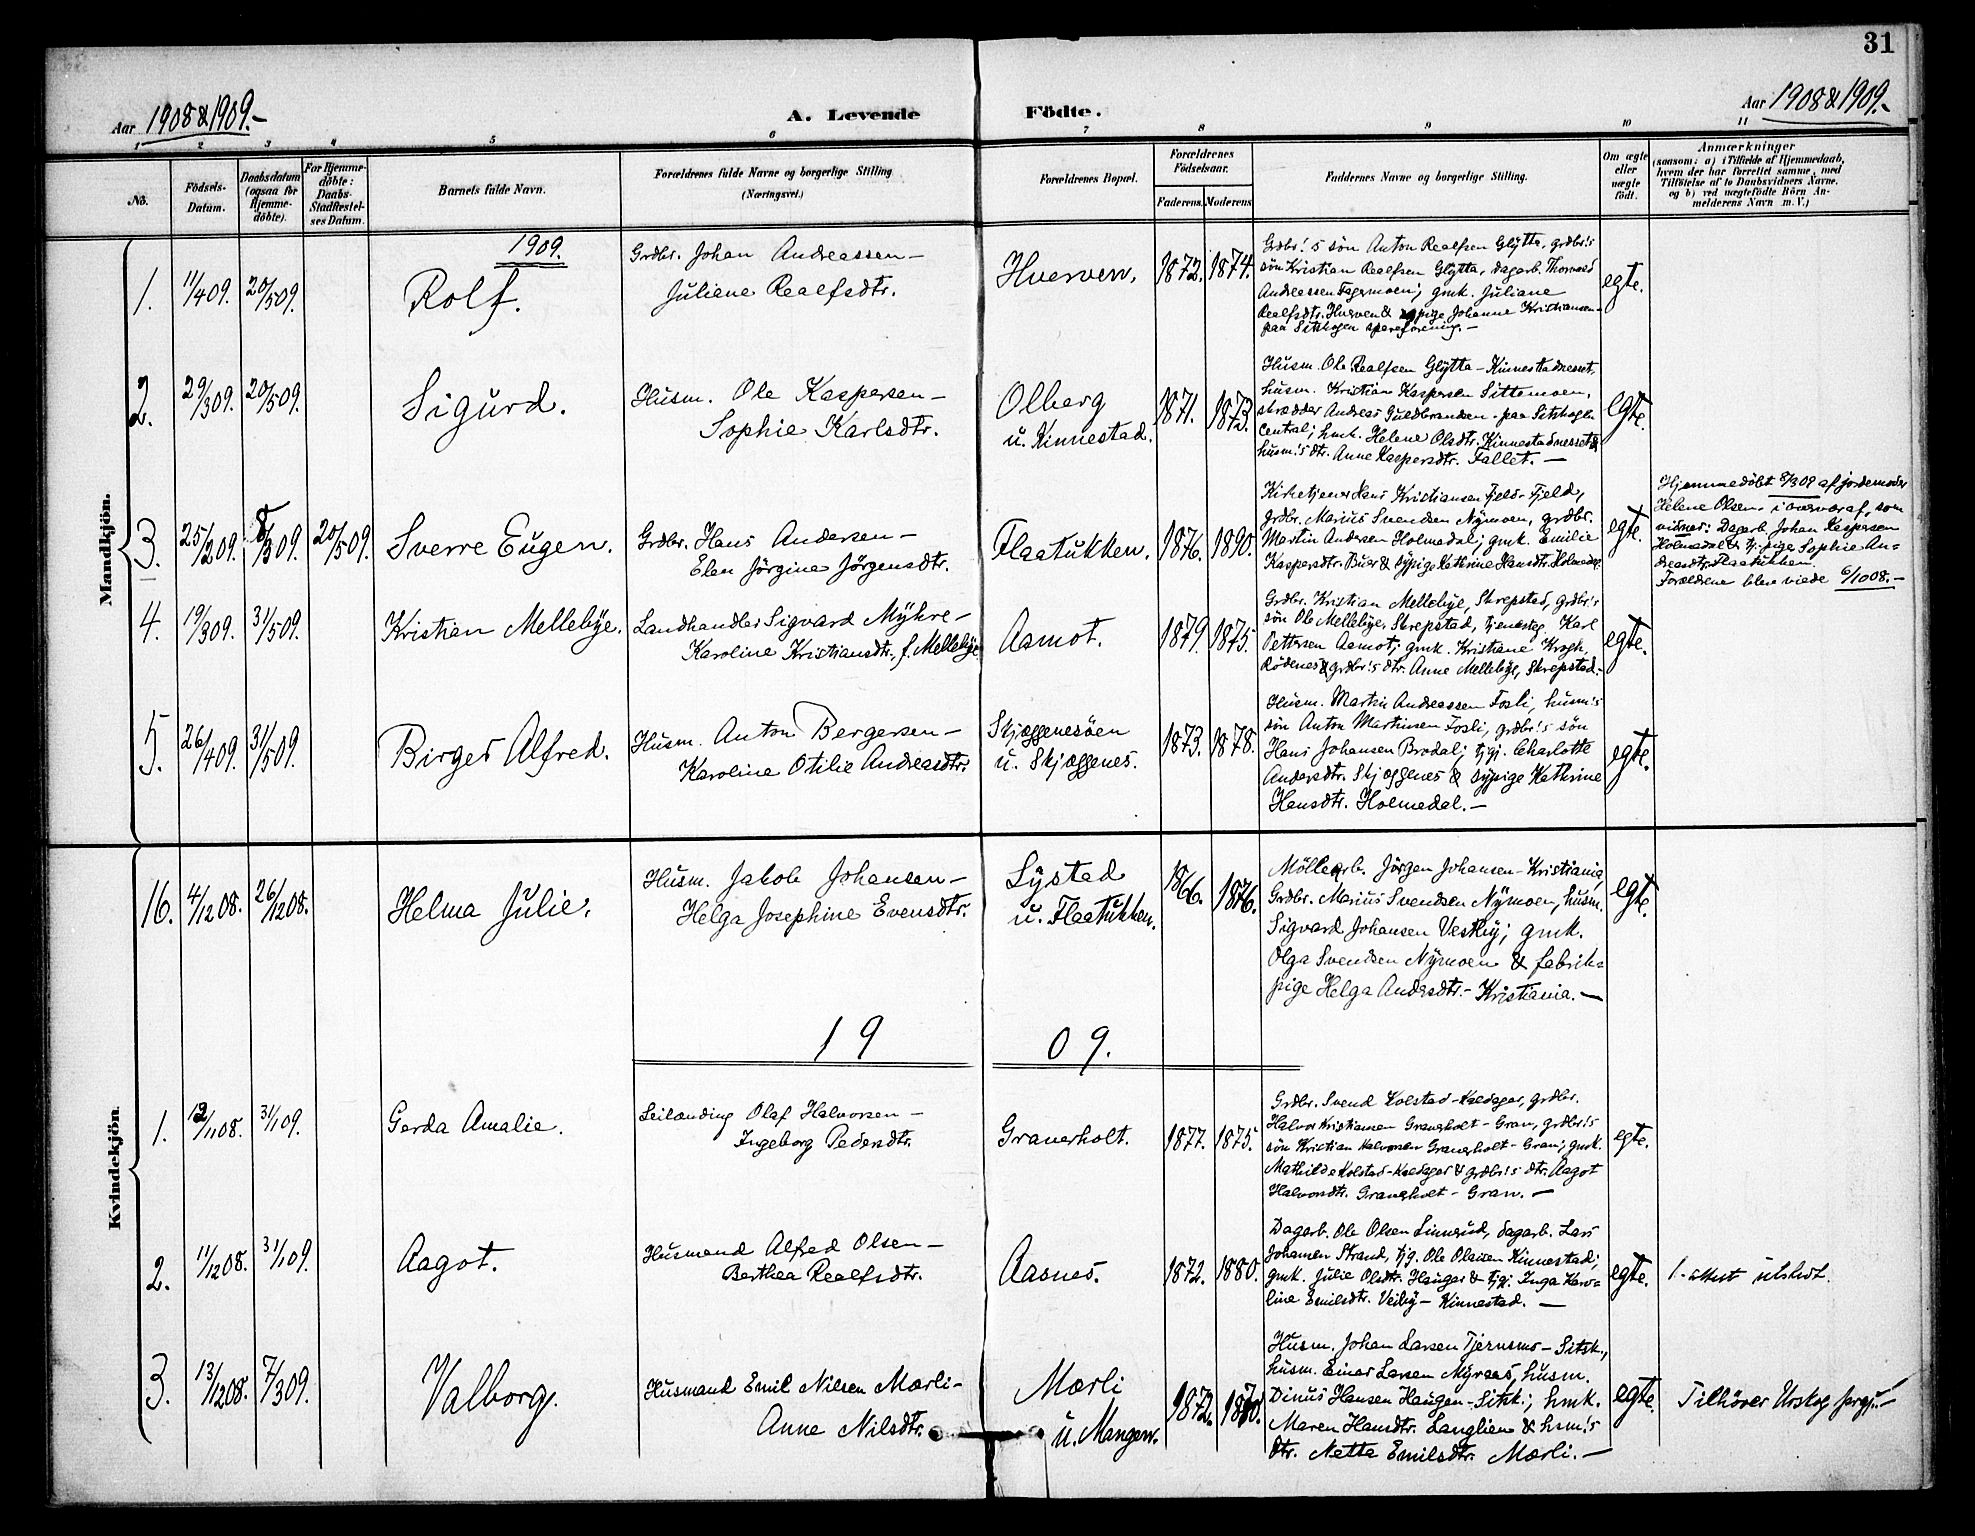 31
Aar 1908 & 1909.-
A. Levende Födte.
Aar 1908 & 1909.-
1 2 3 4 5 6 7 8 9 10 11
No.
Födsels-Datum.
Daabsdatum (ogsaa for Hjemme-döbte).
For Hjemme-döbte: Daabs-Stadfæstelses Datum.
Barnets fulde Navn.
Forældrenes fulde Navne og borgerlige Stilling (Næringsvei.)
Forældrenes Bopæl.
Forældrenes Födselsaar.
Faderens. Moderens
Faddernes Navne og borgerlige Stilling.
Om ægte eller uægte födt.
Anmærkninger
(saasom: a) i Tilfælde af Hjemmedaab, hvem der har forrettet samme, med Tilföielse af to Daabsvidners Navne, og b) ved uægtefödte Börn Anmelderens Navn m. V.)
Mandkjön.
1909.
1. 11/409. 20/509.
Rolf.
Grdbr. Johan Andreassen -
Juliene Realfsdtr.
Hverven.
1872. 1874.
Grdbr.'s sön Anton Realfsen Glÿtta, grdbr.'s
sön Kristian Realfsen Glÿtta, dagarb. Thorvald
Andreassen Fagermoen; gmk. Juliane
Realfsdtr. Hverven & sÿpige Johanne Kristiansen -
paa Sitskogen spareforening. -
egte.
2. 29/309. 20/509.
Sigurd.
Husm. Ole Kaspersen -
Sophie Karlsdtr.
Olberg
u. Kinnestad.
1871. 1873.
Husm. Ole Realfsen Glÿtta - Kinnestadnesset,
husm. Kristian Kaspersen Sittemoen,
skrædder Andreas Guldbrandsen - paa Sitskogen
Central; hmk. Helene Olsdtr. Kinnestadnesset &
husm.'s dtr. Anne Kaspersdtr. Fallet. -
egte.
3. 25/209. 8/309. 20/509.
Sverre Eugen.
Grdbr. Hans Andersen -
Elen Jörgine Jörgensdtr.
Flaatukken.
1876. 1890.
Kirketjener Hans Kristiansen Fjeld - Fjeld,
grdbr. Marius Svendsen Nÿmoen, grdbr.
Martin Andersen Holmedal; gmk. Emilie
Kaspersdtr. Buer & sÿpige Kathrine Hansdtr. Holmedal.
egte.
Hjemmedöbt 8/309 af jordemoder
Helene Olsen - i overvær af, som
vidner: Dagarb. Johan Kaspersen
Holmedal & tj. pige Sophie An-
dreasdtr. Flaatukken.
Forældrene blev viede 6/1008. -
4. 19/309. 31/509.
Kristian Mellebÿe.
Landhandler Sigvard Mÿhre -
Karoline Kristiansdtr., f. Mellebÿe
Aamot.
1879. 1875.
Grdbr. Kristian Mellebÿe, Skrepstad, grdbr.'s
sön Ole Mellebÿe, Skrepstad, tjeneste. Karl
Pettersen Aamot; gmk. Kristiane Krogh,
Rödenes & grdbr.'s dtr. Anne Mellebÿe, Skrepstad.
egte.
5. 26/409. 31/509.
Birger Alfred.
Husm. Anton Bergersen -
Karoline Otilie Andreasdtr.
Skjæggenesöen
u. Skjæggenes.
1873. 1878.
Husm. Martin Andreassen Fosli, husm.'s
sön Anton Martinsen Fosli, grdbr.'s sön
Hans Johansen Brodal; tjpi. Charlotte
Andersdtr. Skjæggenes & sÿpige Kathrine
Hansdtr. Holmedal. -
egte.
Kvindekjön.
16. 4/1208. 26/1208.
Helma Julie.
Husm. Jakob Johansen -
Helga Josephine Evensdtr.
Lÿstad
u. Flaatukken.
1866. 1876.
Möllearb. Jörgen Johansen - Kristiania,
Grdbr. Marius Svendsen Nÿmoen, husm.
Sigvard Johansen Vestbÿ; gmk.
Olga Svendsen Nÿmoen & fabrik-
pige Helga Andersdtr. - Kristiania. -
egte.
1909.
1. 12/1108. 31/109.
Gerda Amalie.
Leilænding Olaf Halvorsen -
Ingeborg Pedersdtr.
Graverholt.
1877. 1875.
Grdbr. Svend Kolstad - Kaldager, grdbr.
Halvor Kristiansen Graverholt - Gran, grdbr.'s
sön Kristian Halvorsen Graverholt - Gran; gmk.
Mathilde Kolstad - Kaldager & grdbr.'s dtr. Aagot
Halvorsdtr. Graverholt - Gran. -
egte.
2. 11/1208. 31/109.
Aagot.
Husmand Alfred Olsen -
Berthea Realfsdtr.
Aasnes.
1872. 1880.
Dagarb. Ole Olsen Linnerud, dagarb. Lars
Johansen Strand, tjg. Ole Olaisen Kinnestad;
gmk. Julie Olsdtr. Haugar & tjpi. Inga Karo-
line Emilsdtr. Veibÿ - Kinnestad. -
egte.
1. attest utstedt.
3. 13/1208. 7/309.
Valborg.
Husmand Emil Nilsen Mærli -
Anne Nilsdtr.
Mærli
u. Mangen.
1872. 1870.
Husm. Johan Larsen Tjernsmo - Sitsk.,
husm. Einar Larsen Mÿraas, husm.
Dinus Hansen Haugen - Sitsk.; hmk.
Maren Hansdtr. Langlien & hsm.'s
dtr. Nette Emilsdtr. Mærli. -
egte.
Tilhörer Urskog